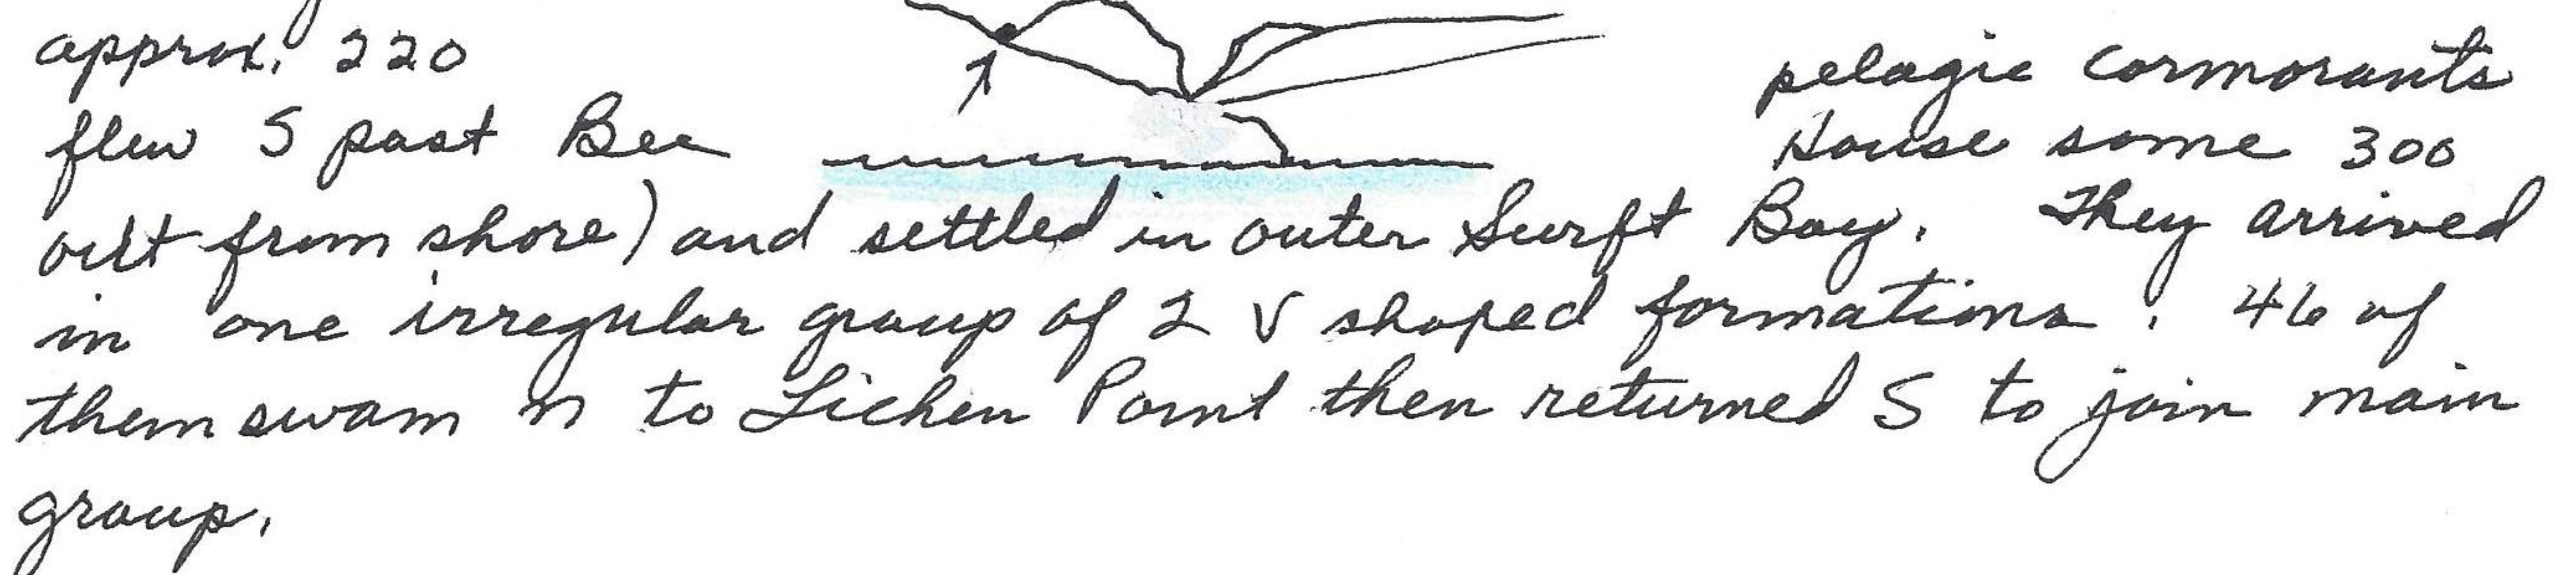 approx. 220 pelagic cormorants
flew S past Bee House some 300
out from shore) and settled in outer Surft Bay. They arrived
in one irregular group of 2 V shaped formations. 46 of
them swam n to Lichen Point then returned S to join main
group.